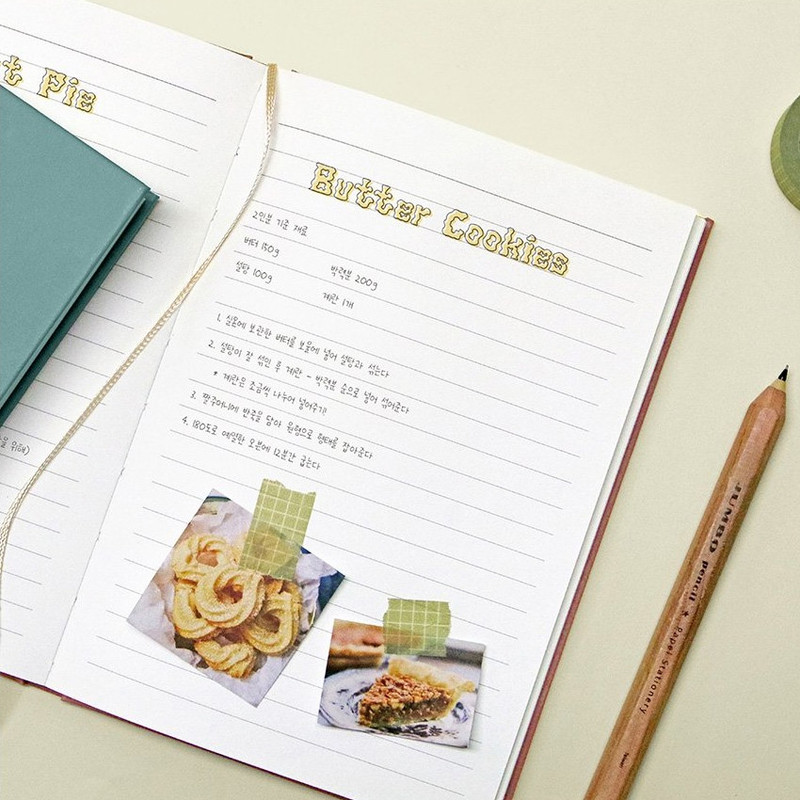 t Pie
위해)
Butter Cookies
2인분 기준 재료
버터 150g
박력분 200g
설탕 100g
계란 1개
1. 실온에 보관한 버터를 보울에 넣어 설탕과 섞는다
2. 설탕이 잘 섞인 후 계란 - 박력분 순으로 넣어 섞어준다
* 계란은 조금씩 나누어 넣어주기!
3. 짤주머니에 반죽을 담아 원형으로 형태를 잡아준다
4. 180도로 예열한 오븐에 12분간 굽는다
JUMBO pencil * Papier Stationery